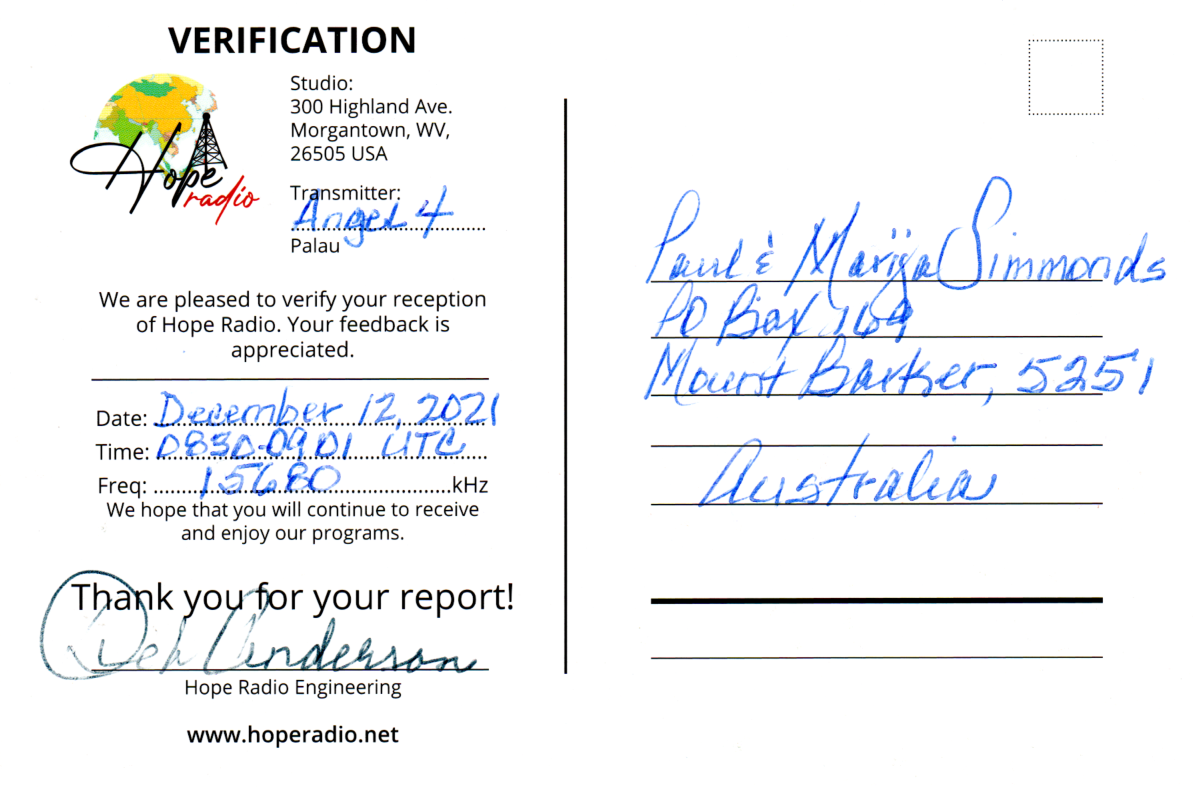 VERIFICATION
Hope
radio
Studio:
300 Highland Ave.
Morgantown, WV,
26505 USA
Transmitter:
Angel 4
Palau
We are pleased to verify your reception
of Hope Radio. Your feedback is
appreciated.
Date: December 12, 2021
Time: 0830-0901 UTC
Freq: 15680 kHz
We hope that you will continue to receive
and enjoy our programs.
Thank you for your report!
Deh Anderson
Hope Radio Engineering
www.hoperadio.net
Paul & Marija Simmonds
PO Box 169
Mount Barker, 5251
Australia